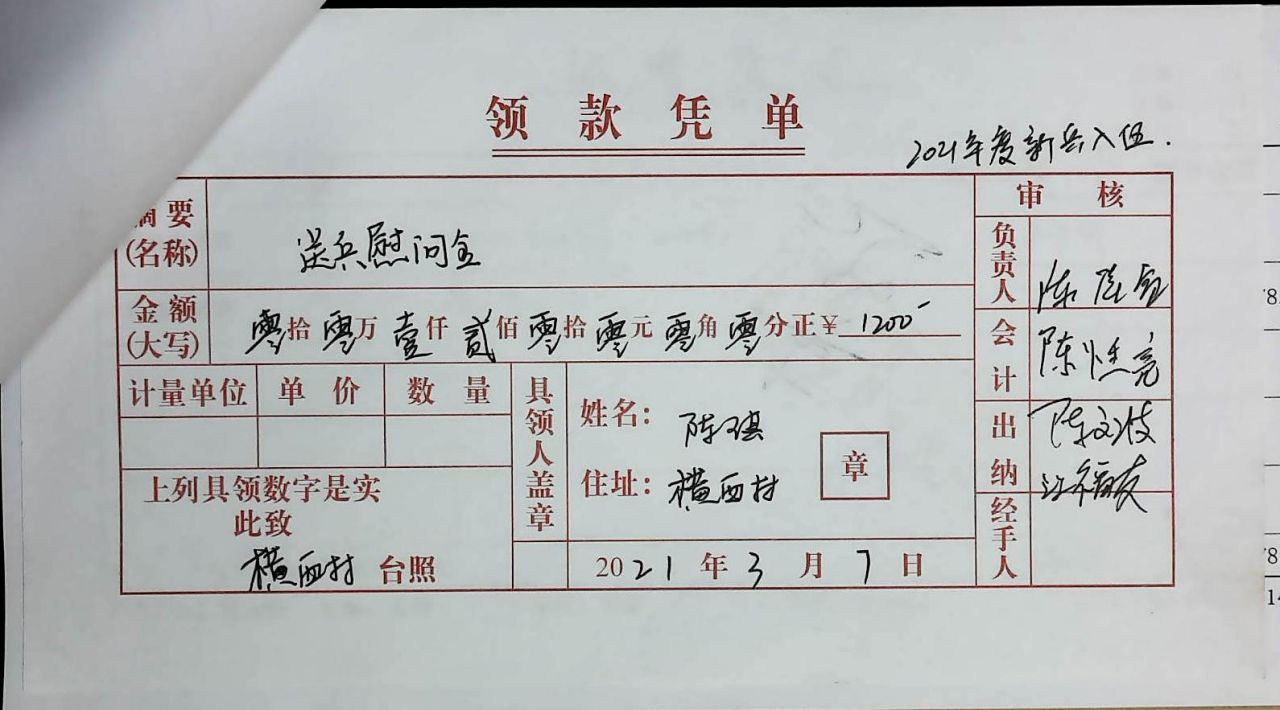 领款凭单
2021年度新兵入伍.
摘要(名称) 送兵慰问金
金额(大写) 零拾零万壹仟贰佰零拾零元零角零分正¥1200-
计量单位 单价 数量
上列具领数字是实
此致
横西村 台照
具领人盖章
姓名: 陈琪
住址: 横西村
章
2021年3月7日
审核
负责人 陈
会计 陈 亮
出纳 陈文波
江福友
经手人
78
78
14